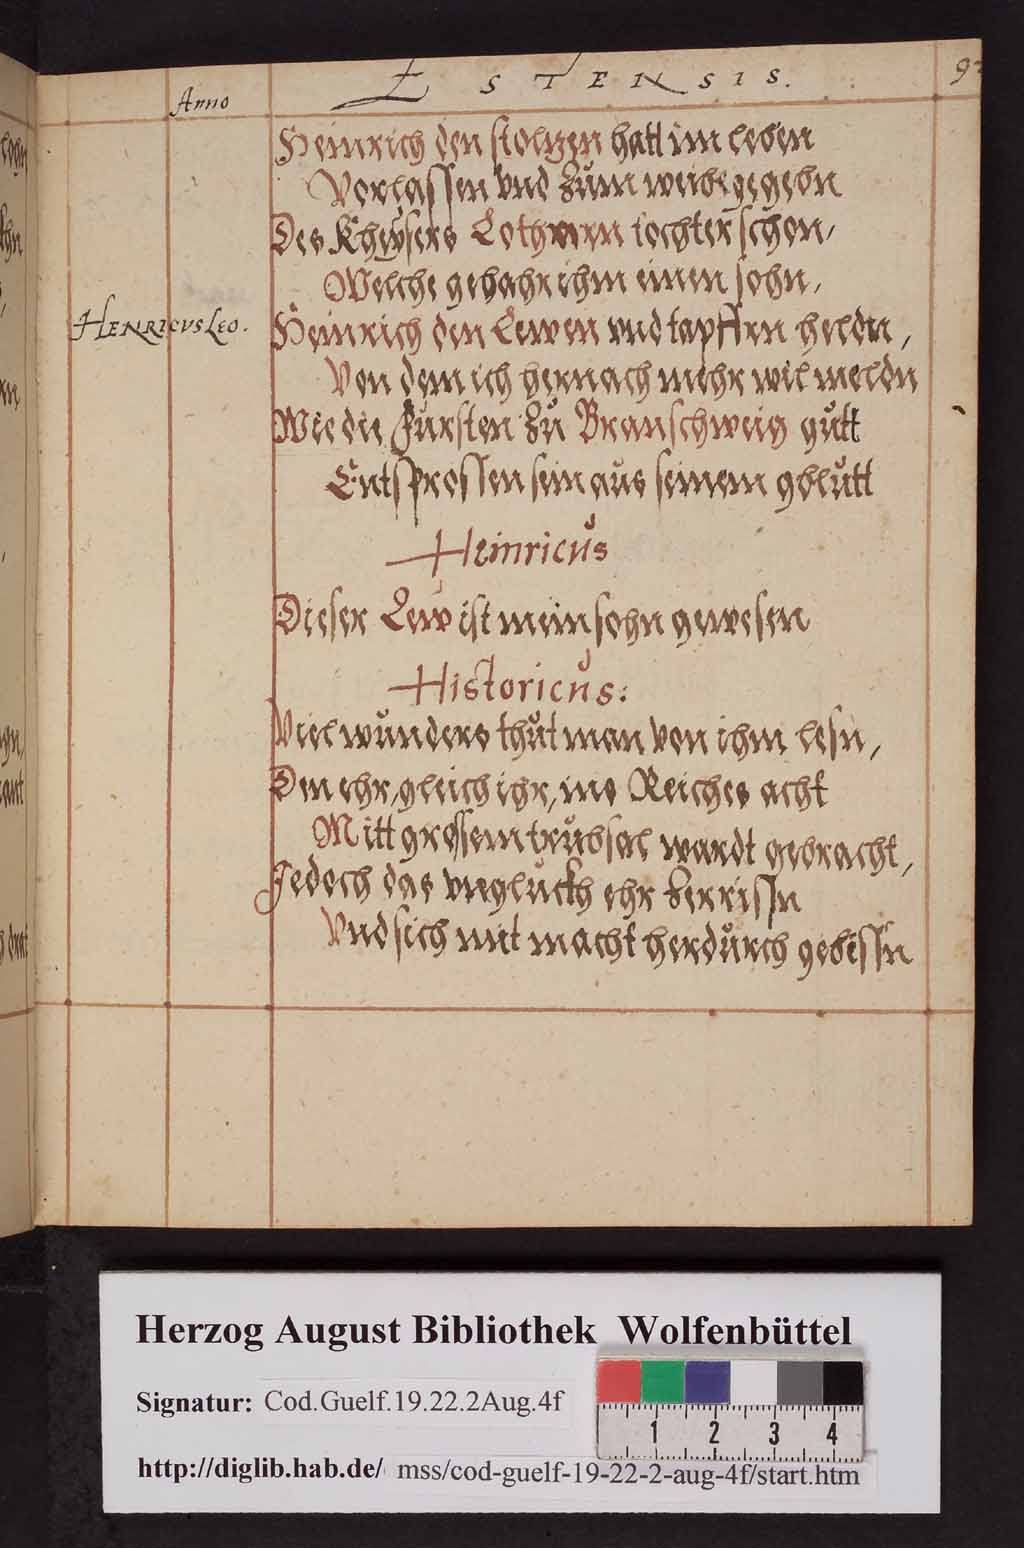 Anno
ESTENSIS.
Heinrich den stoltzen hatt im leben
Vorlassen vnd zum weibe gegebn
Des Kheysers Lothyren tochter schon,
Welche gebahr ihm einen sohn,
HENRICVS LEO.
Heinrich den Lewen vnd tapffrn heldn,
Von dem ich hernach mehr wil meldn
Wie die Fursten zu Branschweig gutt
Entsprossen sein aus seinem geblutt
Heinricus
Dieser Lew ist mein sohn gewesen
Historicus:
Viel wunders thut man von ihm lesn,
Den ehr, gleich ihr, ins Reiches acht
Mitt grossem trubsal wardt gebracht,
Jedoch das vngluckh ehr zerrissn
Vnd sich mit macht herdurch gebissn
Herzog August Bibliothek Wolfenbüttel
Signatur: Cod.Guelf.19.22.2Aug.4f
1 2 3 4
http://diglib.hab.de/ mss/cod-guelf-19-22-2-aug-4f/start.htm